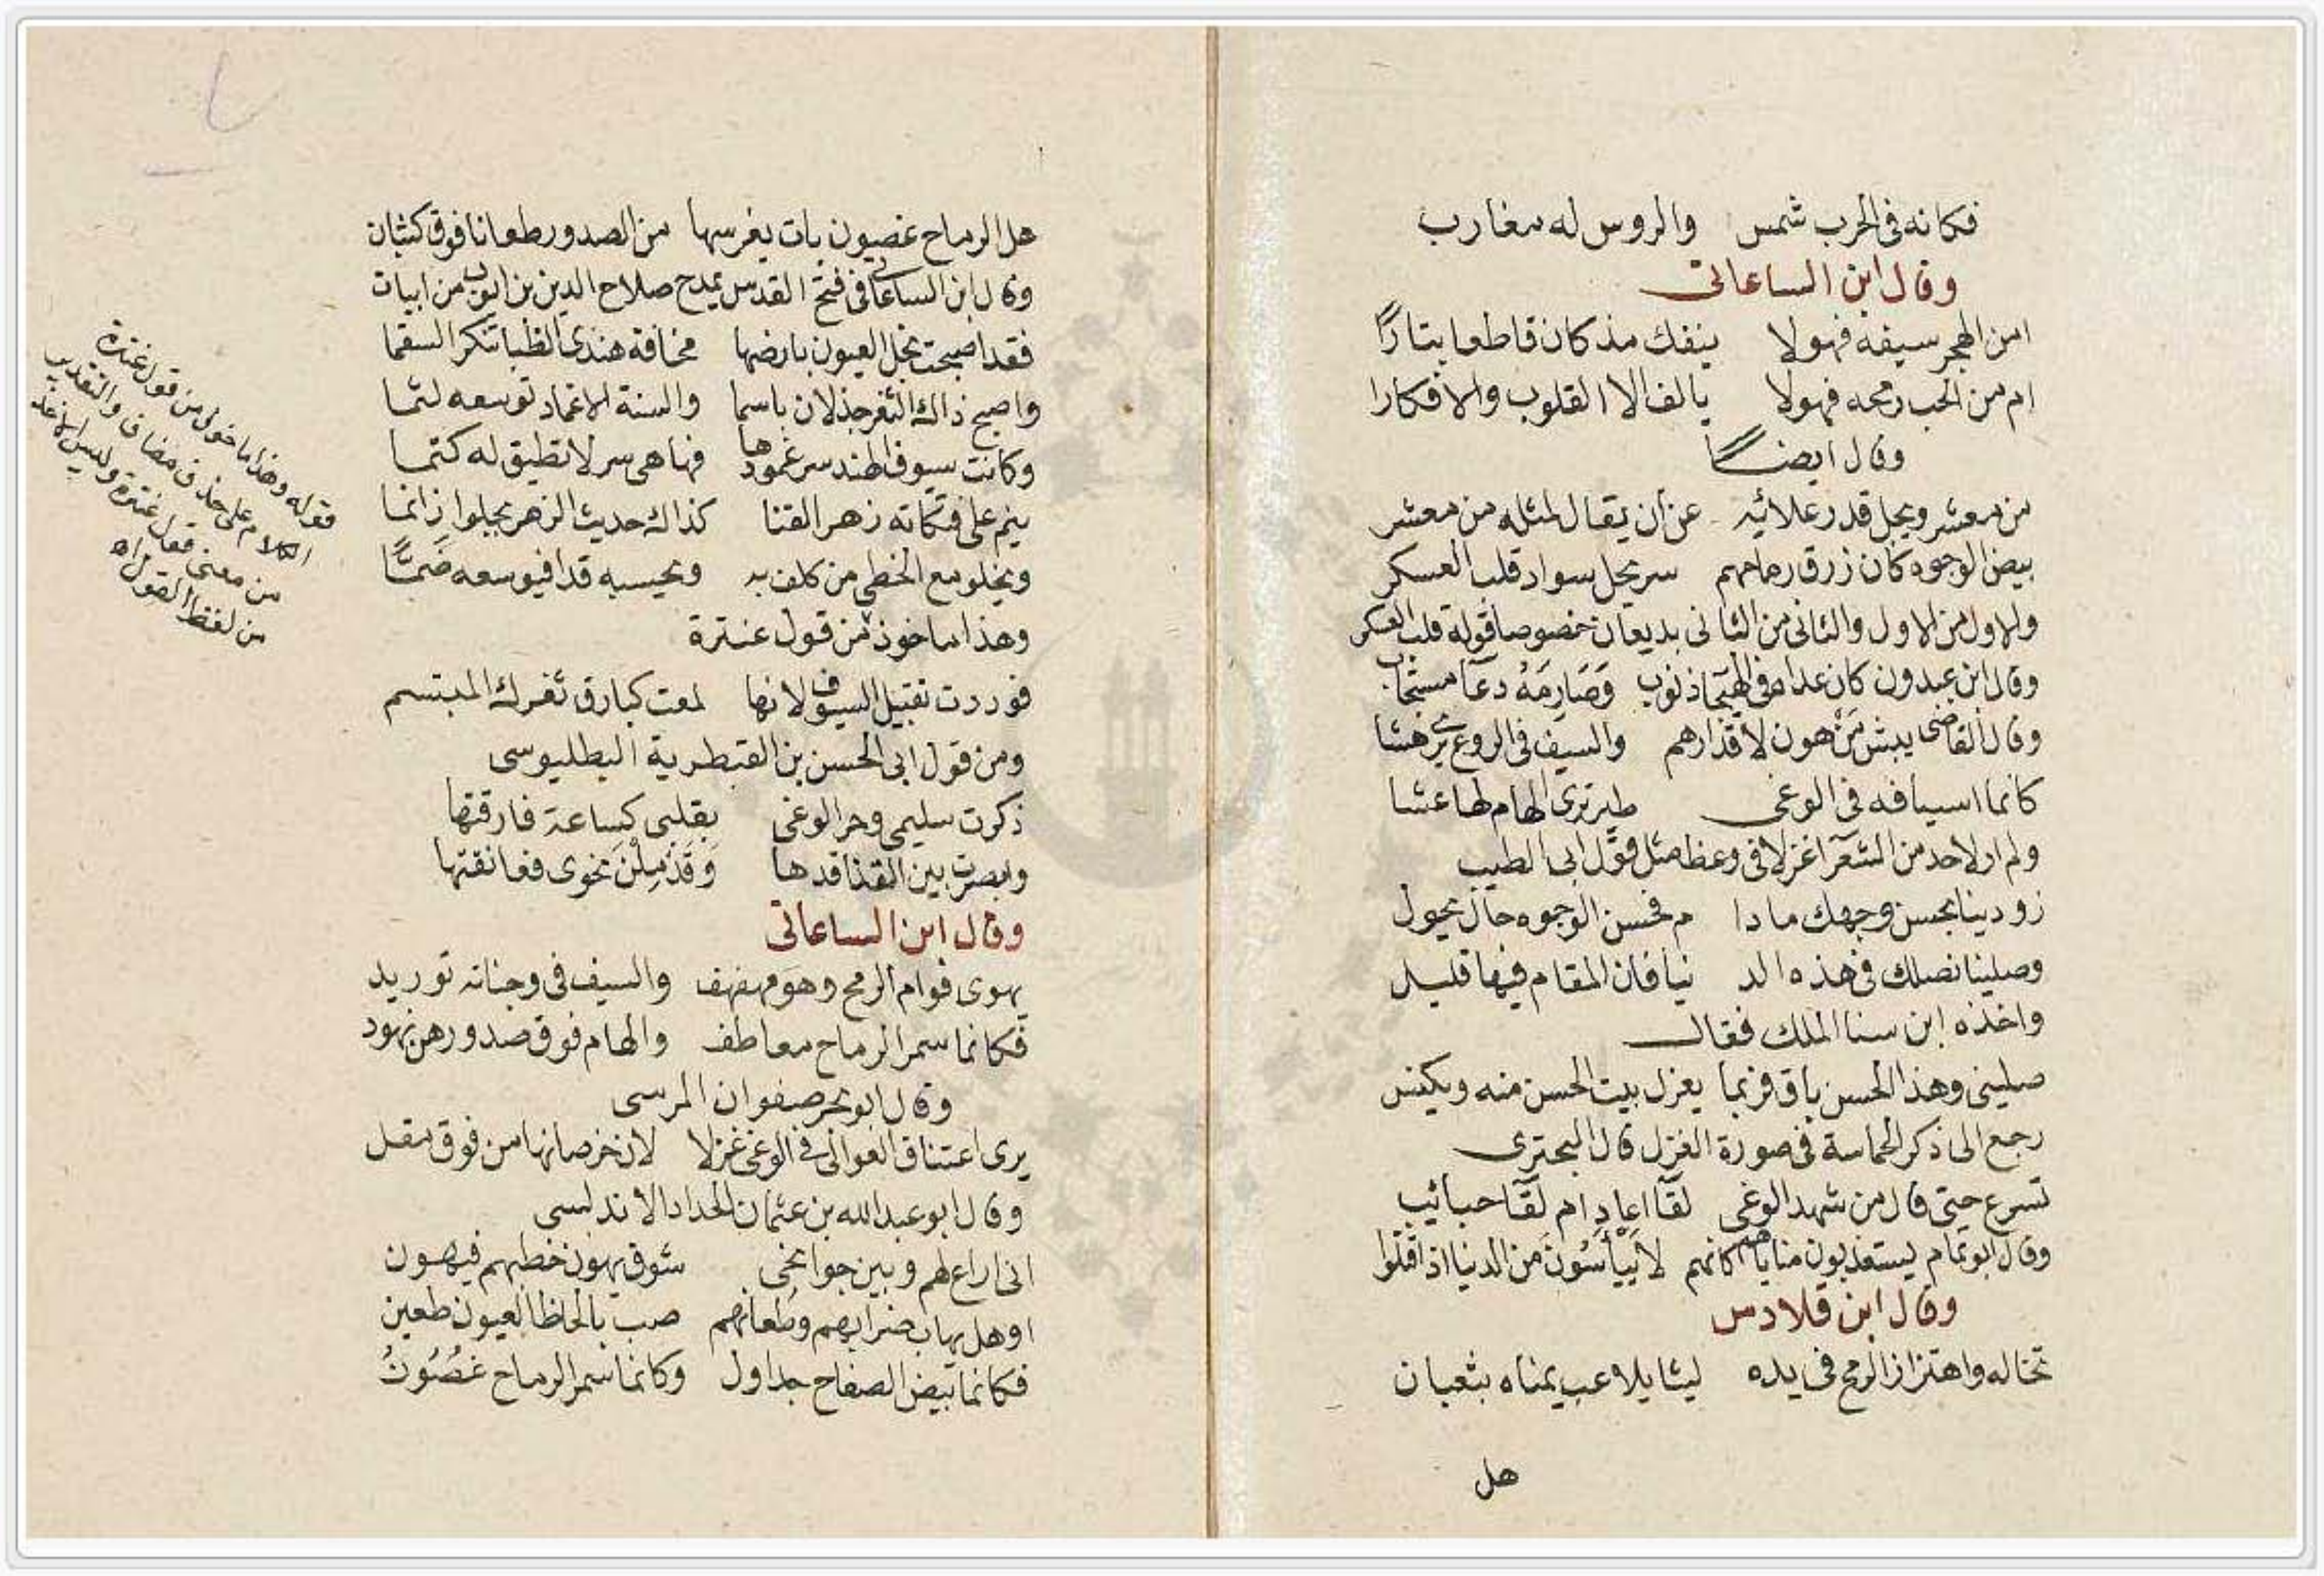 فكانه فى الحرب شمس والروس له مغارب
وقال ابن الساعاتى
امن الهجر سيفه فهو لا ينفك مذ كان قاطعا بتارًا
ام من الحب رمحه فهو لا يالف الا القلوب والافكارا
وقال ايضًا
من معشر ويجل قدر علائه عن ان يقال لمثله من معشر
بيض الوجوه كان زرق رماحهم سر يحل سواد قلب العسكر
والاول من الاول والثانى من الثانى بديعان خصوصا قوله قلب العسكر
وقال ابن عبدون كان عداه فى الهيجا ذنوب وَصَارِمَهُ دعآ مستجاب
وقال القاضى يبش من هون لاقدارهم والسيف فى الروع يرهشا
كانما اسيافه فى الوغى طير ترى الهام لها عشا
ولم ار لاحد من الشعرآ غزلا فى وعظ مثل قول ابى الطيب
زودينا بحسن وجهك مادا م فحسن الوجوه حال يحول
وصلينا نصلك فى هذه الد نيا فان المقام فيها قليل
واخذه ابن سنا الملك فقال
صلينى وهذا الحسن باق فربما يعزل بيت الحسن منه ويكنس
رجع الى ذكر الحماسة فى صورة الغزل قال البحترى
تسرع حتى قال من شهد الوغى لقآ اعادٍ ام لقآ حبائب
وقال ابو تمام يستعذبون مناياهم كانهم لا يَيْأَسُونَ من الدنيا اذا قتلوا
وقال ابن قلادس
تخاله واهتزاز الرمح فى يده ليثا يلاعب يمناه بثعبان
هل
هل الرماح غصون بات يغرسها من الصدور طعانا فوق كثبان
وقال ابن الساعاتى فى فتح القدس يمدح صلاح الدين بن ايوب من ابيات
فقد اصبحت نجل العيون بارضها مخافة هندى الظبا تنكر السقما
واصبح ذاك الثغر جذلان باسما والسنة الاغماد توسعه لثما
وكانت سيوف الهند سر غمودها فها هى سر لا تطيق له كتما
ينم على فتكاته زهر القنا كذاك حديث الزهر يحلو اذا نما
ويخلو مع الخطى من كلف به ويحسبه قدا فيوسعه ضَمًّا
وهذا ماخوذ من قول عنترة
فوددت تقبيل السيوف لانها لمعت كبارق ثغرك المبتسم
ومن قول ابى الحسن بن القبطرية البطليوسى
ذكرت سليمى وحر الوغى بقلبى كساعة فارقتها
وابصرت بين القنا قدها وَقَدْ مِلْنَ نحوى فعانقتها
وقال ابن الساعاتى
يهوى قوام الرمح وهو مهفهف والسيف فى وجناته توريد
فكانما سمر الرماح معاطف والهام فوق صدورهن نهود
وقال ابو بحر صفوان المرسى
يرى اعتناق العوالى فى الوغى غزلا لان خرصانها من فوق مقل
وقال ابو عبد الله بن عثمان الحداد الاندلسى
انى اراع لهم وبين جوانحى شوق يهون خطبهم فيهون
او هل يهاب ضرابهم وطعانهم صب بالحاظ العيون طعين
فكانما بيض الصفاح جداول وكانما سمر الرماح غصُونُ
قوله وهذا ماخوذ من قول عنترة
الكلام على حذف مضاف والتقدير
من معنى قول عنترة وليس الاخذ
من لفظ القول اه